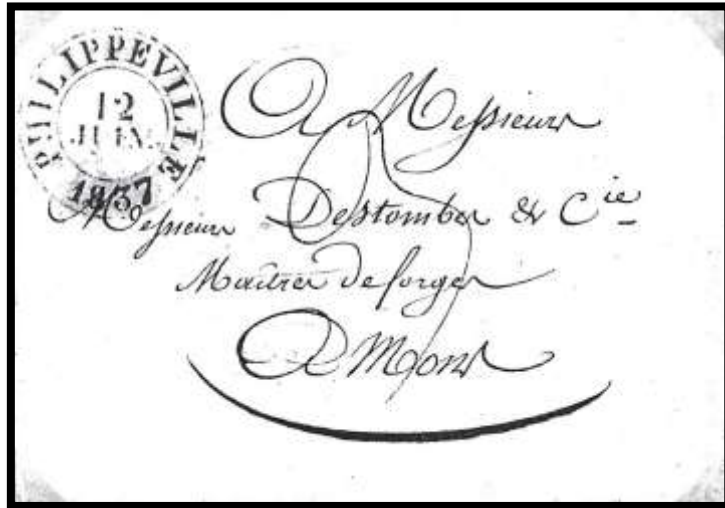 PHILIPPEVILLE
12
JUIN
1837
A Messieurs
Messieurs Destombes & Cie
Maitres de forges
A Mons